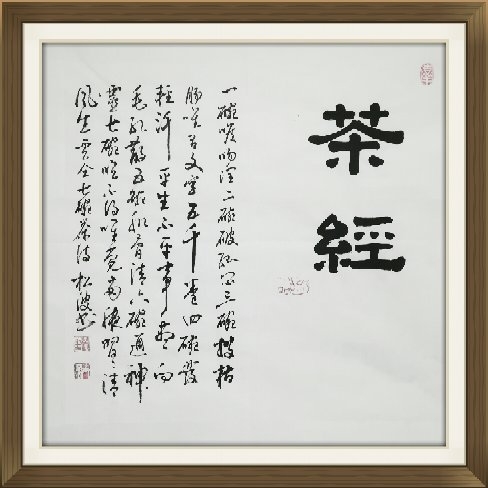 茶經
一碗喉吻润二碗破孤闷三碗搜枯
肠唯有文字五千卷四碗發
轻汗平生不平事尽向
毛孔散五碗肌骨清六碗通神
靈七碗吃不得唯觉两腋習々清
風生卢仝七碗茶诗 松波书